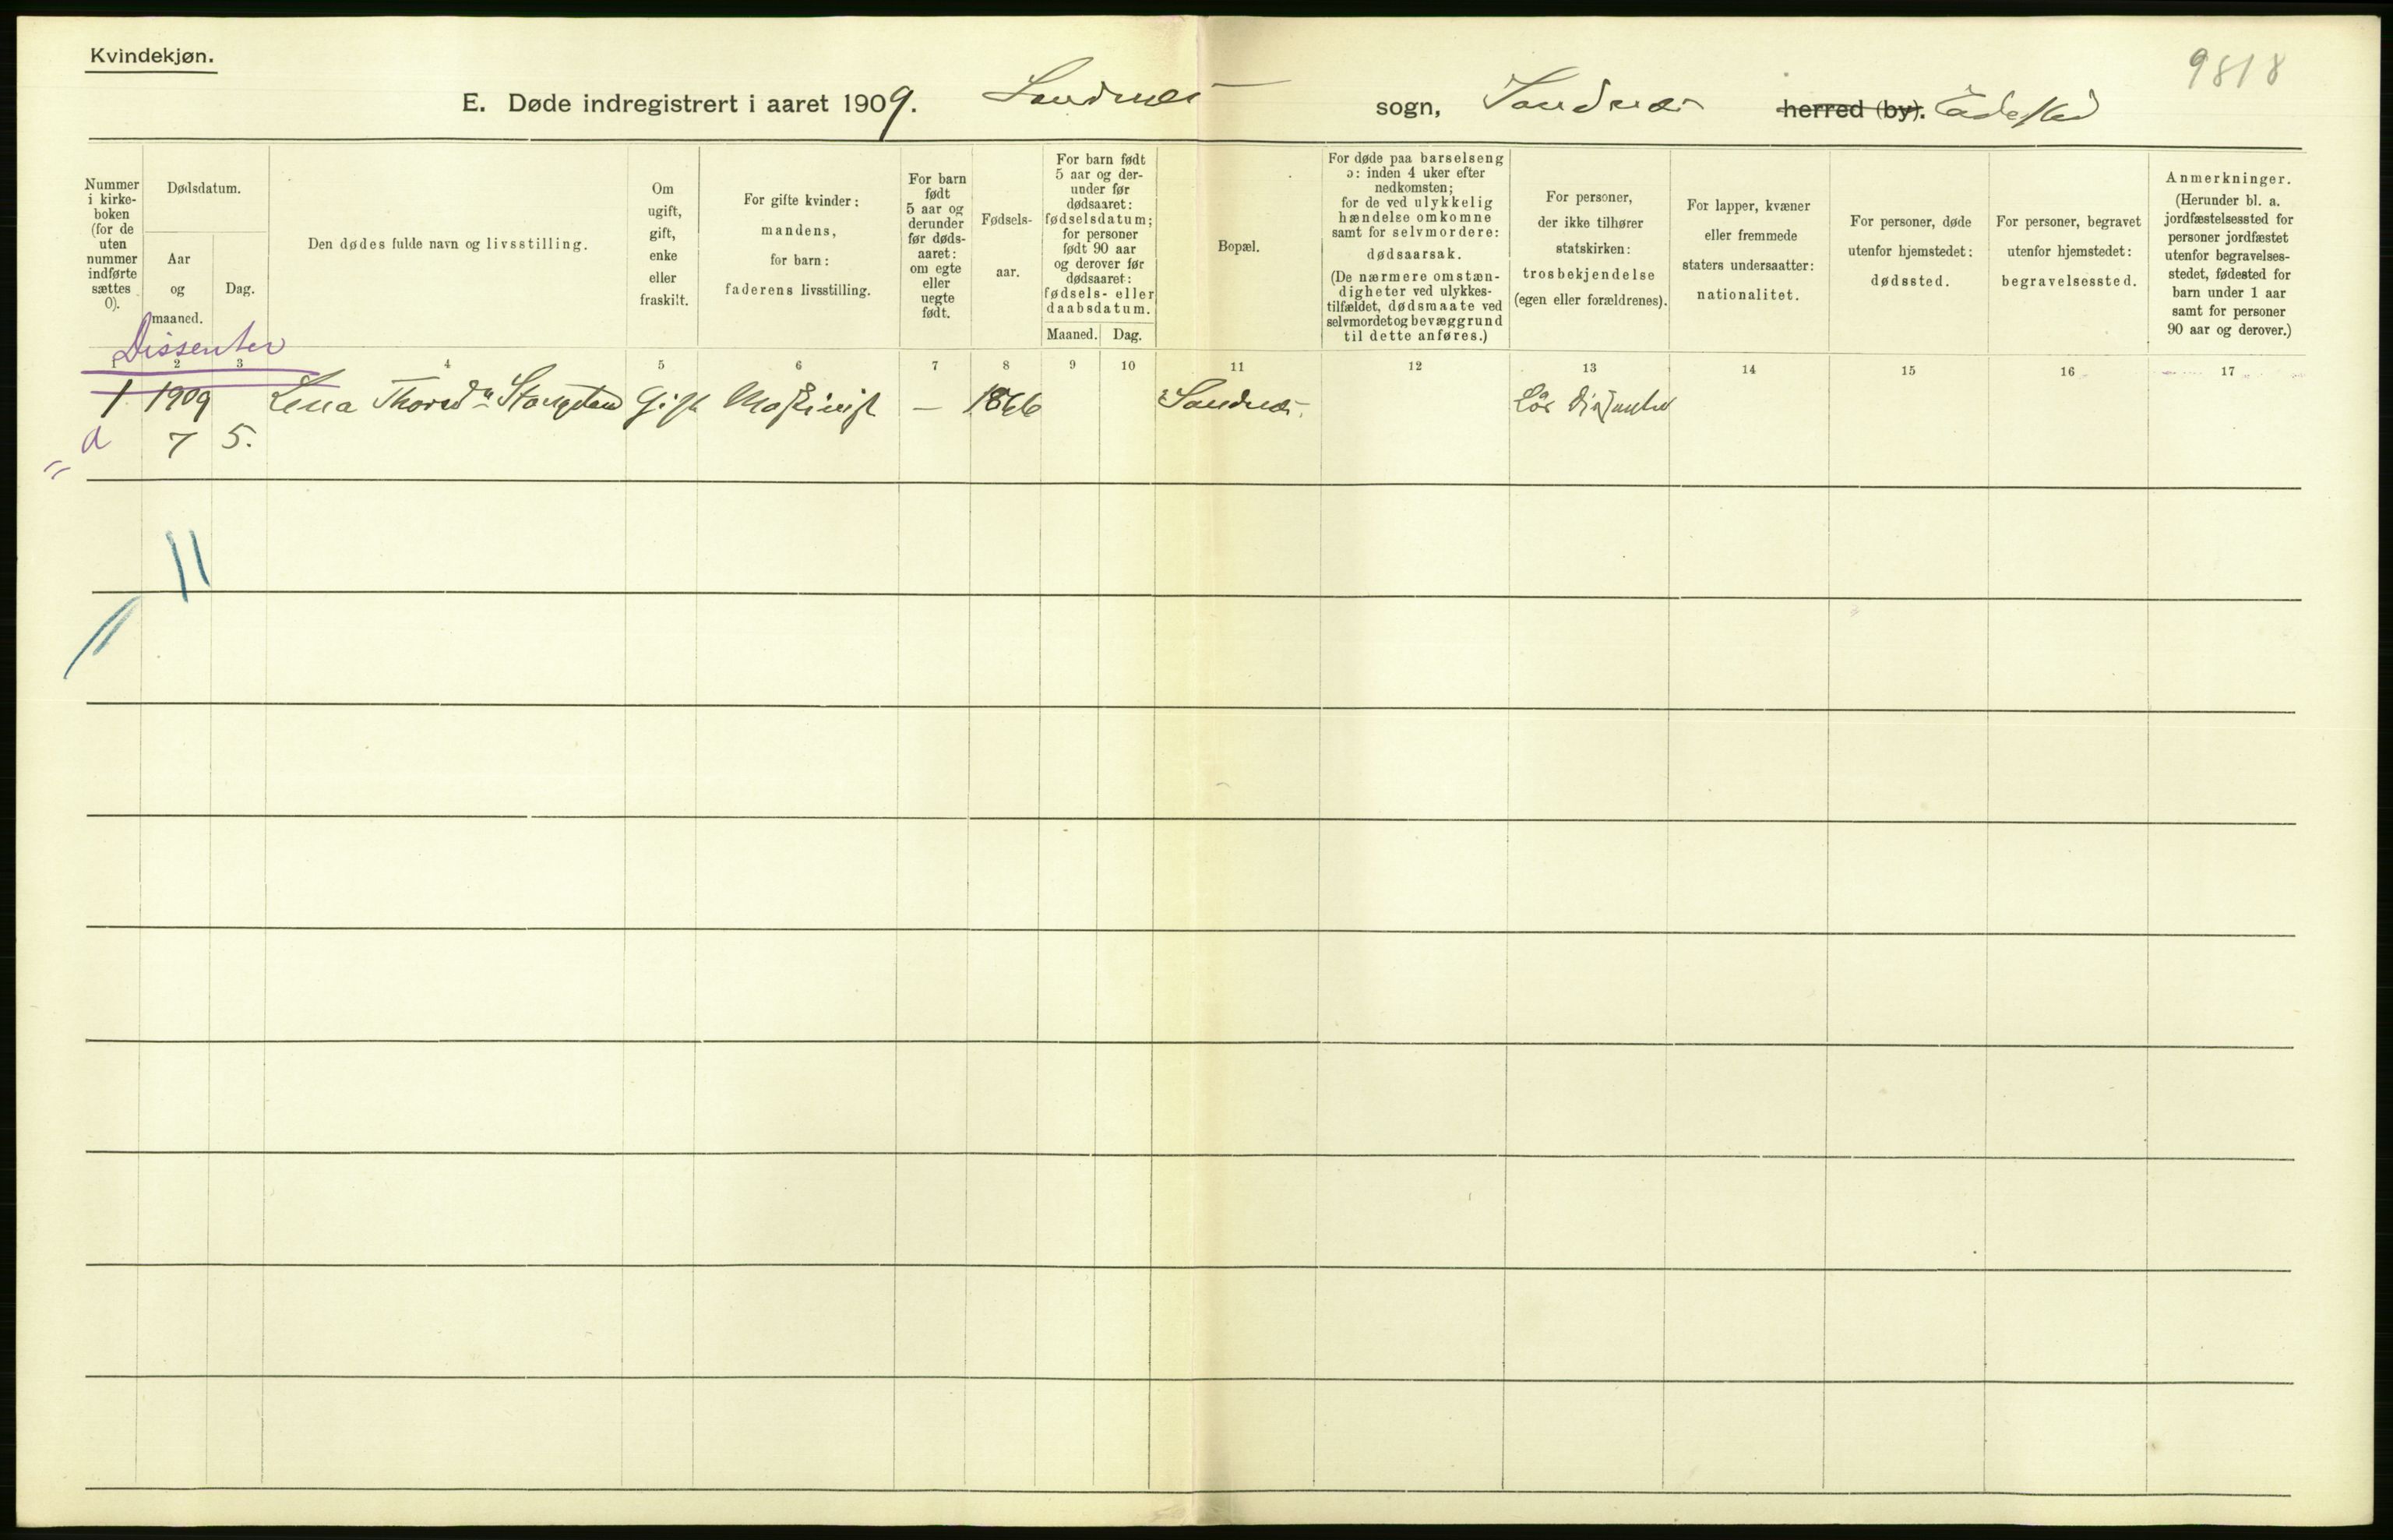 Kvindekjøn.
9818
E. Døde indregistrert i aaret 1909. Sandnes sogn, Sandnes herred (by). Ladested
Nummer i kirke- boken (for de uten nummer indførte sættes 0).
Dødsdatum.
Aar og maaned.
Dag.
Den dødes fulde navn og livsstilling.
Om ugift, gift, enke eller fraskilt.
For gifte kvinder: mandens, for barn: faderens livsstilling.
For barn født 5 aar og derunder før døds- aaret: om egte eller uegte født.
Fødsels- aar.
For barn født 5 aar og der- under før dødsaaret: fødselsdatum; for personer født 90 aar og derover før dødsaaret: fødsels- eller daabsdatum.
Maaned. Dag.
Bopæl.
For døde paa barselseng ɔ: inden 4 uker efter nedkomsten; for de ved ulykkelig hændelse omkomne samt for selvmordere: dødsaarsak. (De nærmere omstæn- digheter ved ulykkes- tilfældet, dødsmaate ved selvmordet og bevæggrund til dette anføres.)
For personer, der ikke tilhører statskirken: trosbekjendelse (egen eller forældrenes).
For lapper, kvæner eller fremmede staters undersaatter: nationalitet.
For personer, døde utenfor hjemstedet: dødssted.
For personer, begravet utenfor hjemstedet: begravelsessted.
Anmerkninger. (Herunder bl. a. jordfæstelsessted for personer jordfæstet utenfor begravelses- stedet, fødested for barn under 1 aar samt for personer 90 aar og derover.)
Dissenter
1 2 3 4 5 6 7 8 9 10 11 12 13 14 15 16 17
1 1909 Lena Thorsdn Gift Maskinist — 1866 Sandnes.
d 7 5.